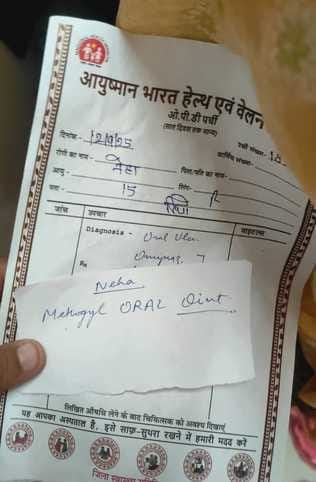 आयुष्मान भारत हेल्थ एवं वेलन
ओ.पी.डी पर्ची
(सात दिवस तक मान्य)
दिनांक- 12/9/25 रेफरी संख्या- 10
रोगी का नाम- नेहा वार्षिक संख्या-
आयु- 15 पिता/पति का नाम-
पता- लिंग-
जांच उपचार वाइटल्स
Diagnosis - Oral Ulcer
Rx
Neha
Metrogyl ORAL Oint
लिखित औषधि लेने के बाद चिकित्सक को अवश्य दिखाएं
यह आपका अस्पताल है, इसे साफ़-सुथरा रखने में हमारी मदद करें
जिला स्वास्थ्य